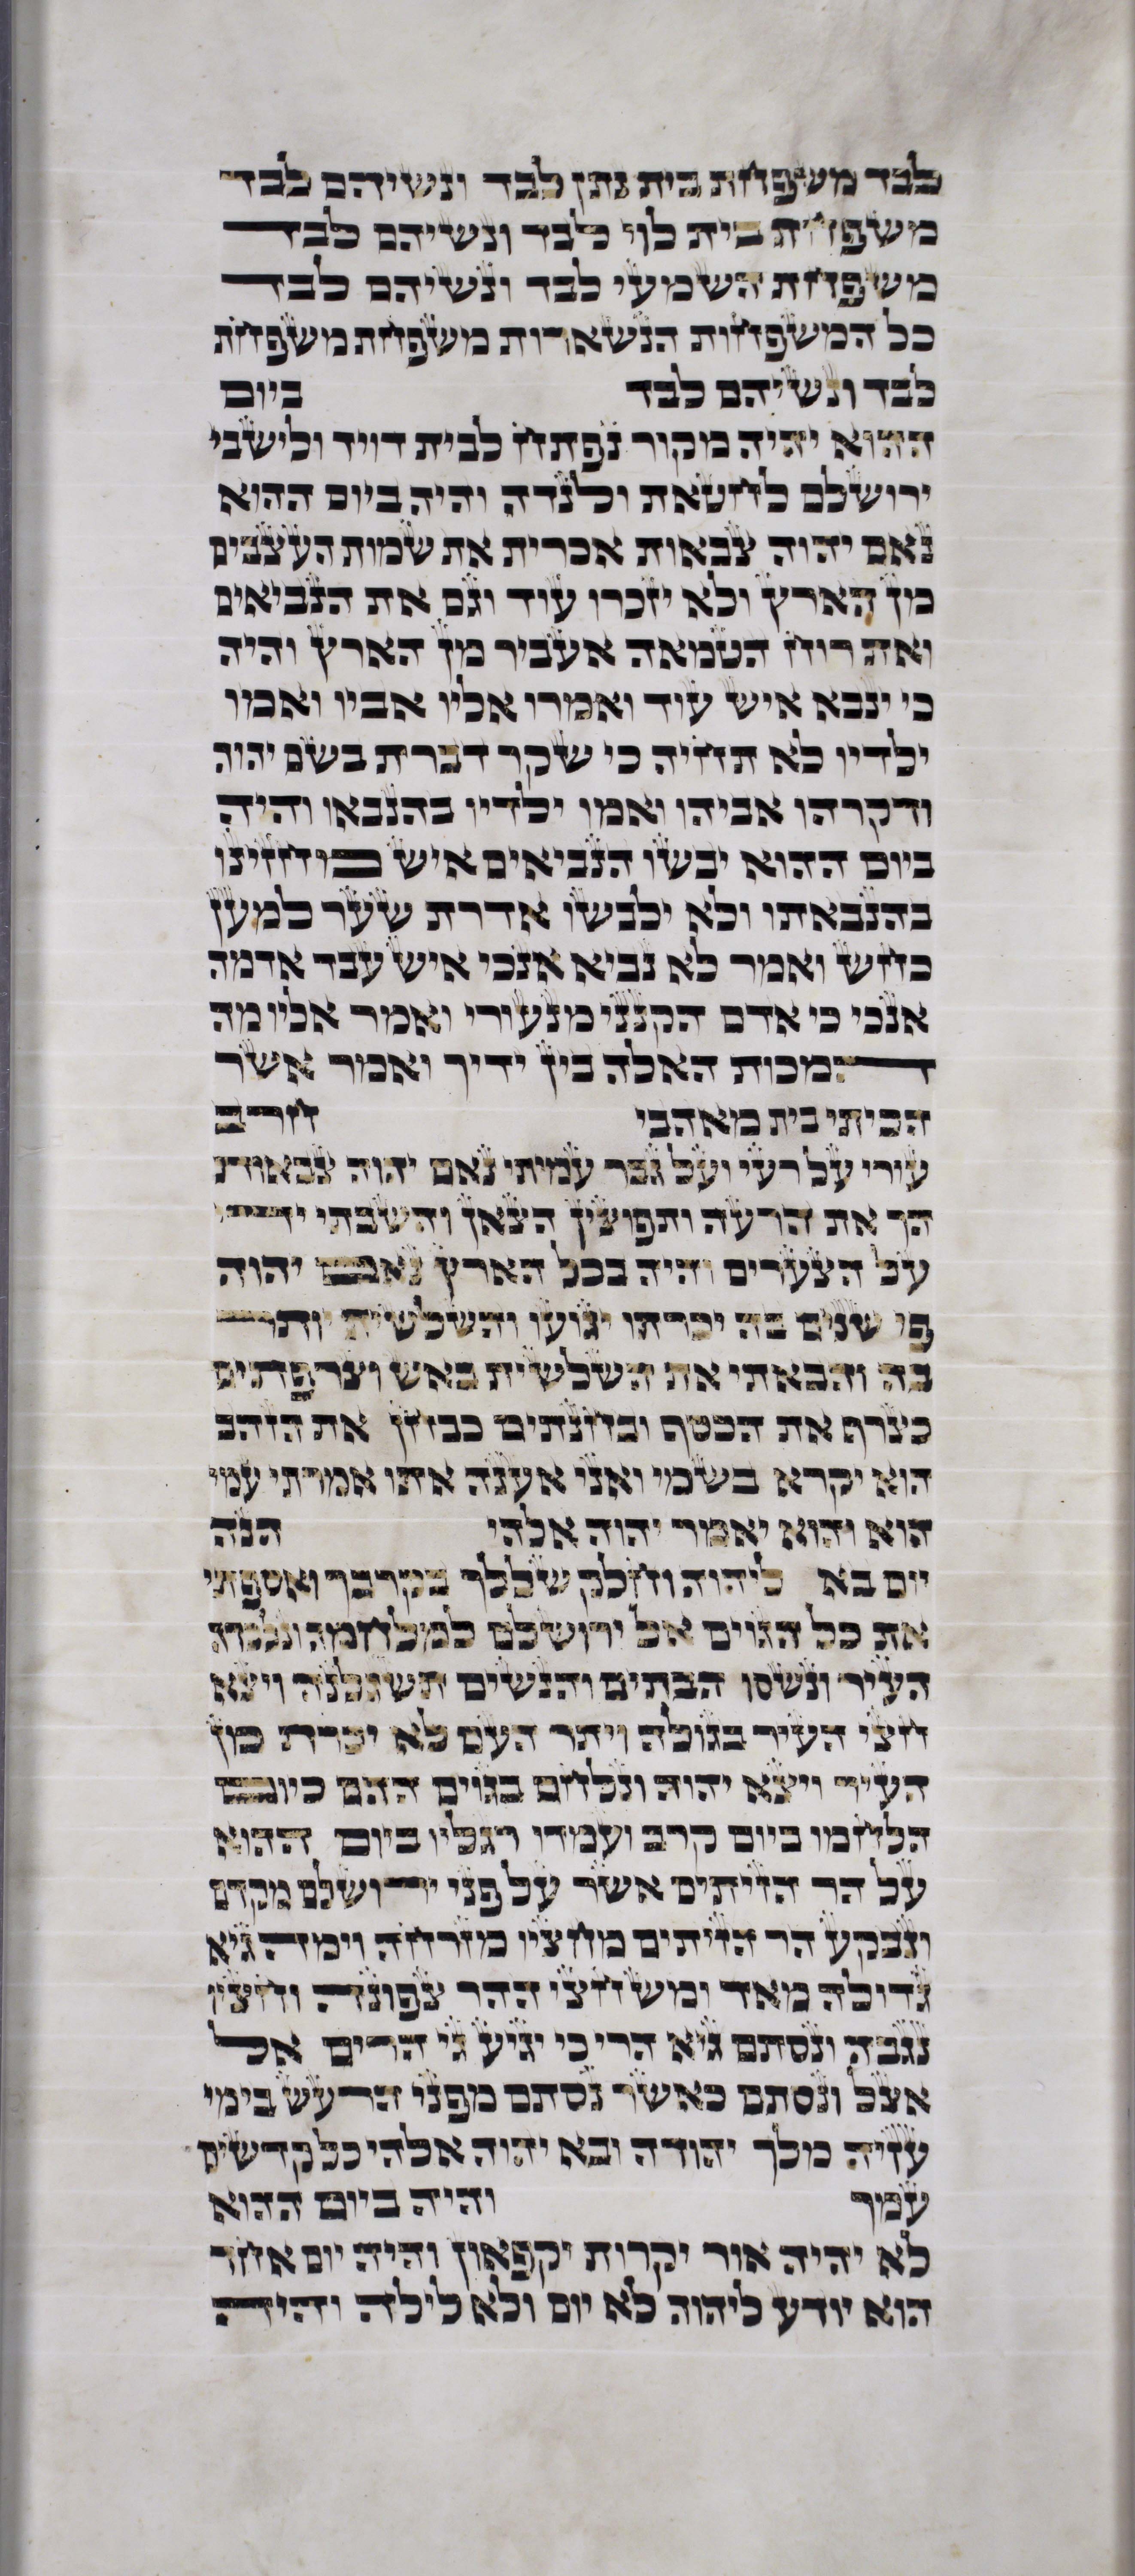 לבד משפחת בית נתן לבד ונשיהם לבד
משפחת בית לוי לבד ונשיהם לבד
משפחת השמעי לבד ונשיהם לבד
כל המשפחות הנשארות משפחת משפחת
לבד ונשיהם לבד ביום
ההוא יהיה מקור נפתח לבית דויד ולישבי
ירושלם לחטאת ולנדה והיה ביום ההוא
נאם יהוה צבאות אכרית את שמות העצבים
מן הארץ ולא יזכרו עוד וגם את הנביאים
ואת רוח הטמאה אעביר מן הארץ והיה
כי ינבא איש עוד ואמרו אליו אביו ואמו
ילדיו לא תחיה כי שקר דברת בשם יהוה
ודקרהו אביהו ואמו ילדיו בהנבאו והיה
ביום ההוא יבשו הנביאים איש מחזינו
בהנבאתו ולא ילבשו אדרת שער למען
כחש ואמר לא נביא אנכי איש עבד אדמה
אנכי כי אדם הקנני מנעורי ואמר אליו מה
המכות האלה בין ידיך ואמר אשר
הכיתי בית מאהבי חרב
עורי על רעי ועל גבר עמיתי נאם יהוה צבאות
הך את הרעה ותפוצין הצאן והשבתי ידי
על הצערים והיה בכל הארץ נאם יהוה
פי שנים בה יכרתו יגועו והשלשית יותר
בה והבאתי את השלשית באש וצרפתים
כצרף את הכסף ובחנתים כבחן את הזהב
הוא יקרא בשמי ואני אענה אתו אמרתי עמי
הוא והוא יאמר יהוה אלהי הנה
יום בא ליהוה וחלק שללך בקרבך ואספתי
את כל הגוים אל ירושלם למלחמה ונלכדה
העיר ונשסו הבתים והנשים תשגלנה ויצא
חצי העיר בגולה ויתר העם לא יכרת מן
העיר ויצא יהוה ונלחם בגוים ההם כיום
הלחמו ביום קרב ועמדו רגליו ביום ההוא
על הר הזיתים אשר על פני ירושלם מקדם
ונבקע הר הזיתים מחציו מזרחה וימה גיא
גדולה מאד ומש חצי ההר צפונה וחציו
נגבה ונסתם גיא הרי כי יגיע גי הרים אל
אצל ונסתם כאשר נסתם מפני הרעש בימי
עזיה מלך יהודה ובא יהוה אלהי כל קדשים
עמך והיה ביום ההוא
לא יהיה אור יקרות יקפאון והיה יום אחד
הוא יודע ליהוה לא יום ולא לילה והיה